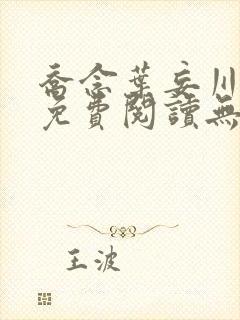 喬念葉妄川
免費閱讀無
王波